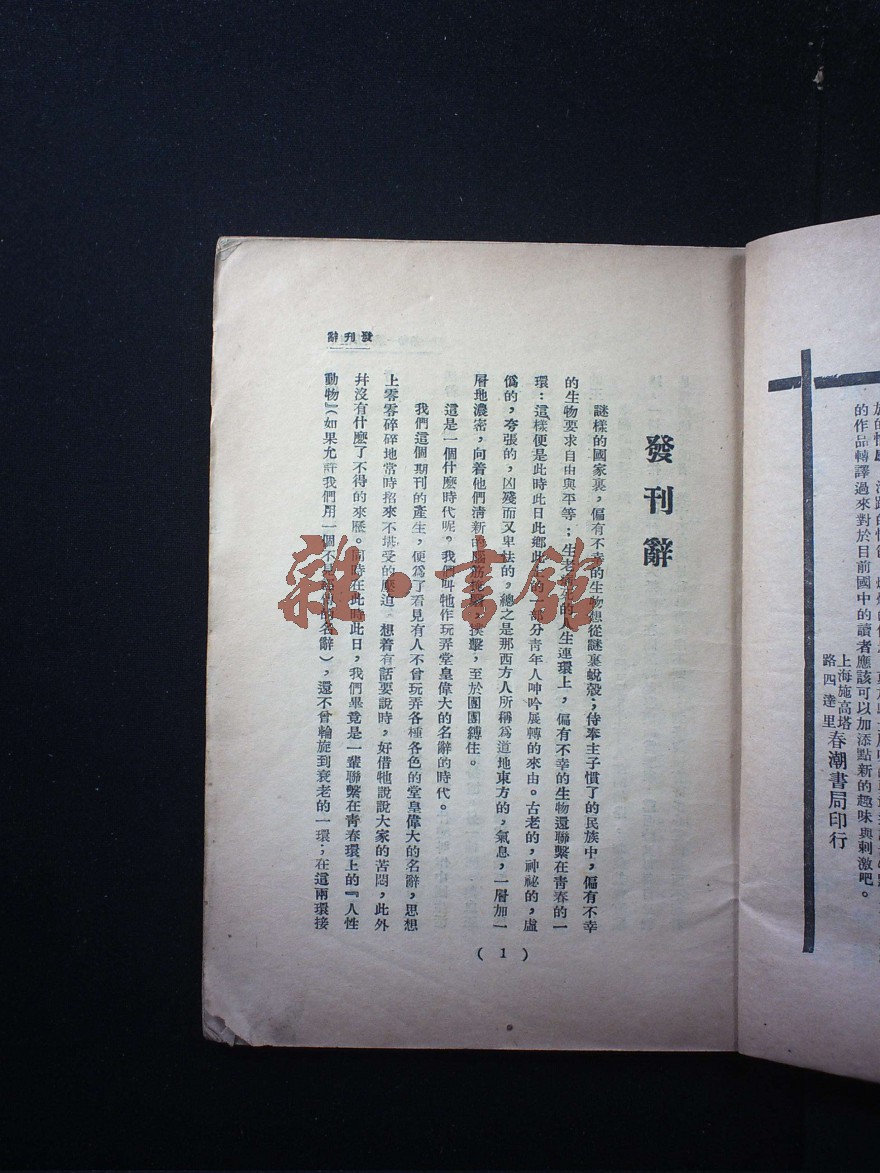 發刊辭
發刊辭
謎樣的國家裏，偏有不幸的生物想從謎裏蛻殼；侍奉主子慣了的民族中，偏有不幸
的生物要求自由與平等；生老病死的人生連環上，偏有不幸的生物還聯繫在青春的一
環：這樣便是此時此日此鄉此土的一部分青年人呻吟展轉的來由。古老的，神祕的，虛
僞的，夸張的，凶殘而又卑怯的，總之是那西方人所稱爲道地東方的，氣息，一層加一
層地濃密，向着他們淸新的腦筋撲擊，至於團團縛住。
這是一個什麽時代呢。我們叫牠作玩弄堂皇偉大的名辭的時代。
我們這個期刊的產生，便爲了看見有人不曾玩弄各種各色的堂皇偉大的名辭，思想
上零零碎碎地常時招來不堪受的壓迫 想着有話要說時，好借牠說說大家的苦悶，此外
幷沒有什麽了不得的來歷。同時在此時此日，我們畢竟是一羣聯繫在靑春環上的『人性
動物』（如果允許我們用一個不是的名辭），還不曾輪旋到衰老的一環；在這兩環接
（1）
的作品轉譯過來對於目前國中的讀者應該可以加添點新的趣味與刺激吧。
上海施高塔
路四達里
春潮書局印行
雜·書館